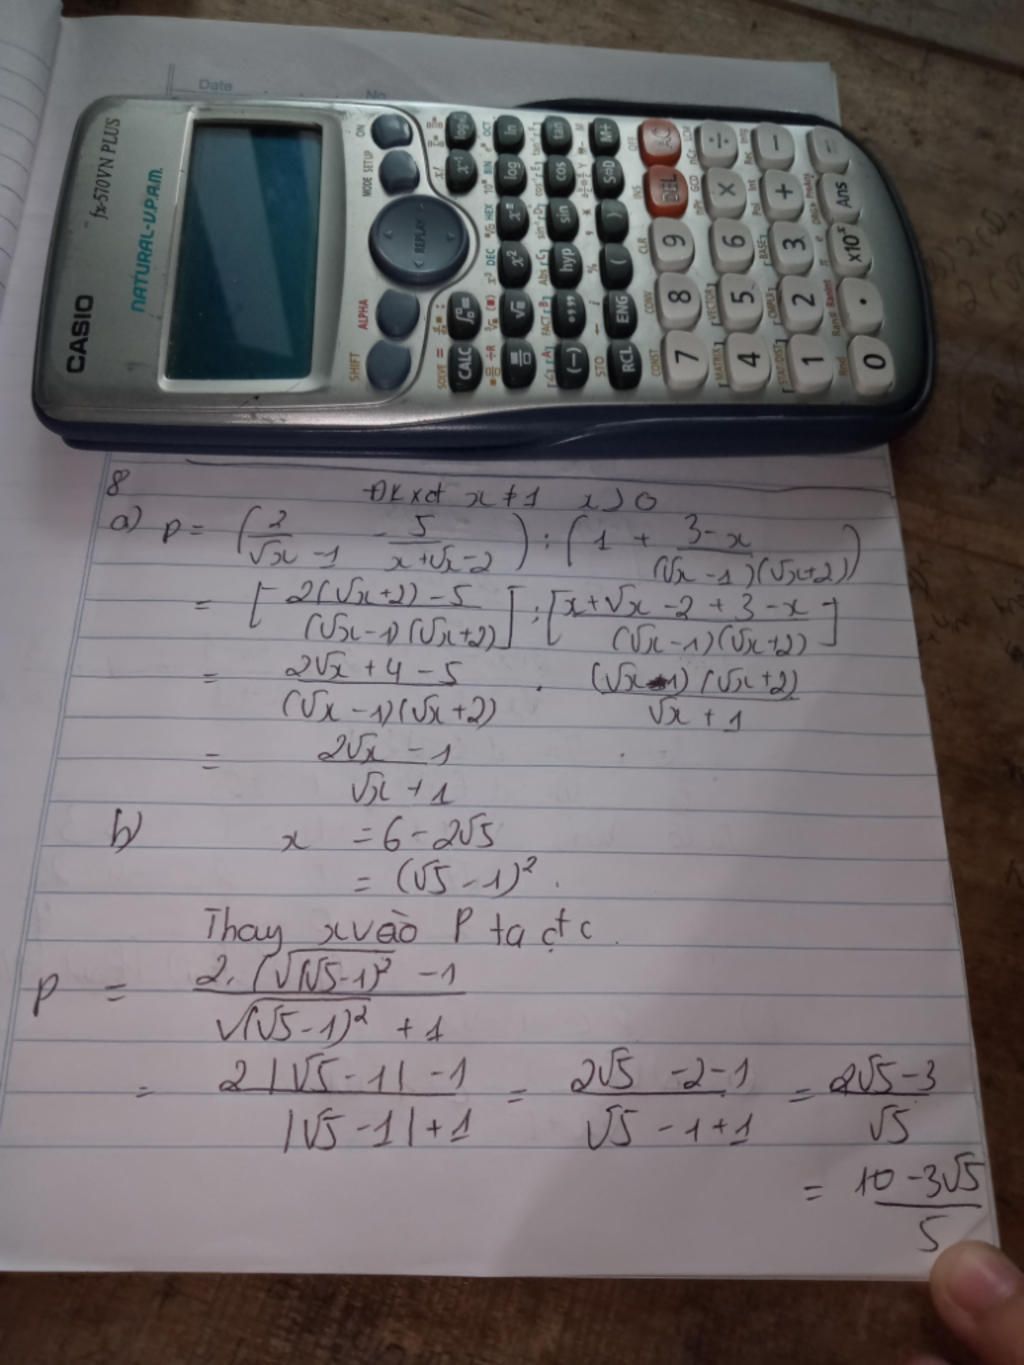 Date No
CASIO fx-570VN PLUS
NATURAL-V.P.A.M.
SHIFT ALPHA REPLAY MODE SETUP ON
CALC x⁻¹
√ x² log ln
(−) hyp sin cos tan
RCL ENG ( ) S⇔D M+
7 8 9 DEL AC
4 5 6 × ÷
1 2 3 + −
0 . ×10ˣ Ans =
8 ĐKxđ x ≠ 1 x > 0
a) P = (2/(√x − 1) − 5/(x+√x−2)) : (1 + (3−x)/((√x−1)(√x+2)))
= [(2(√x+2) − 5)/((√x−1)(√x+2))] : [(x+√x−2+3−x)/((√x−1)(√x+2))]
= (2√x + 4 − 5)/((√x−1)(√x+2)) . ((√x−1)(√x+2))/(√x + 1)
= (2√x − 1)/(√x + 1)
b) x = 6 − 2√5
= (√5 − 1)² .
Thay x vào P ta đc .
P = (2.(√(√5−1)² − 1)/(√(√5−1)² + 1)
= (2|√5−1| −1)/(|√5−1|+1) = (2√5 −2−1)/(√5 −1+1) = (2√5−3)/√5
= (10−3√5)/5